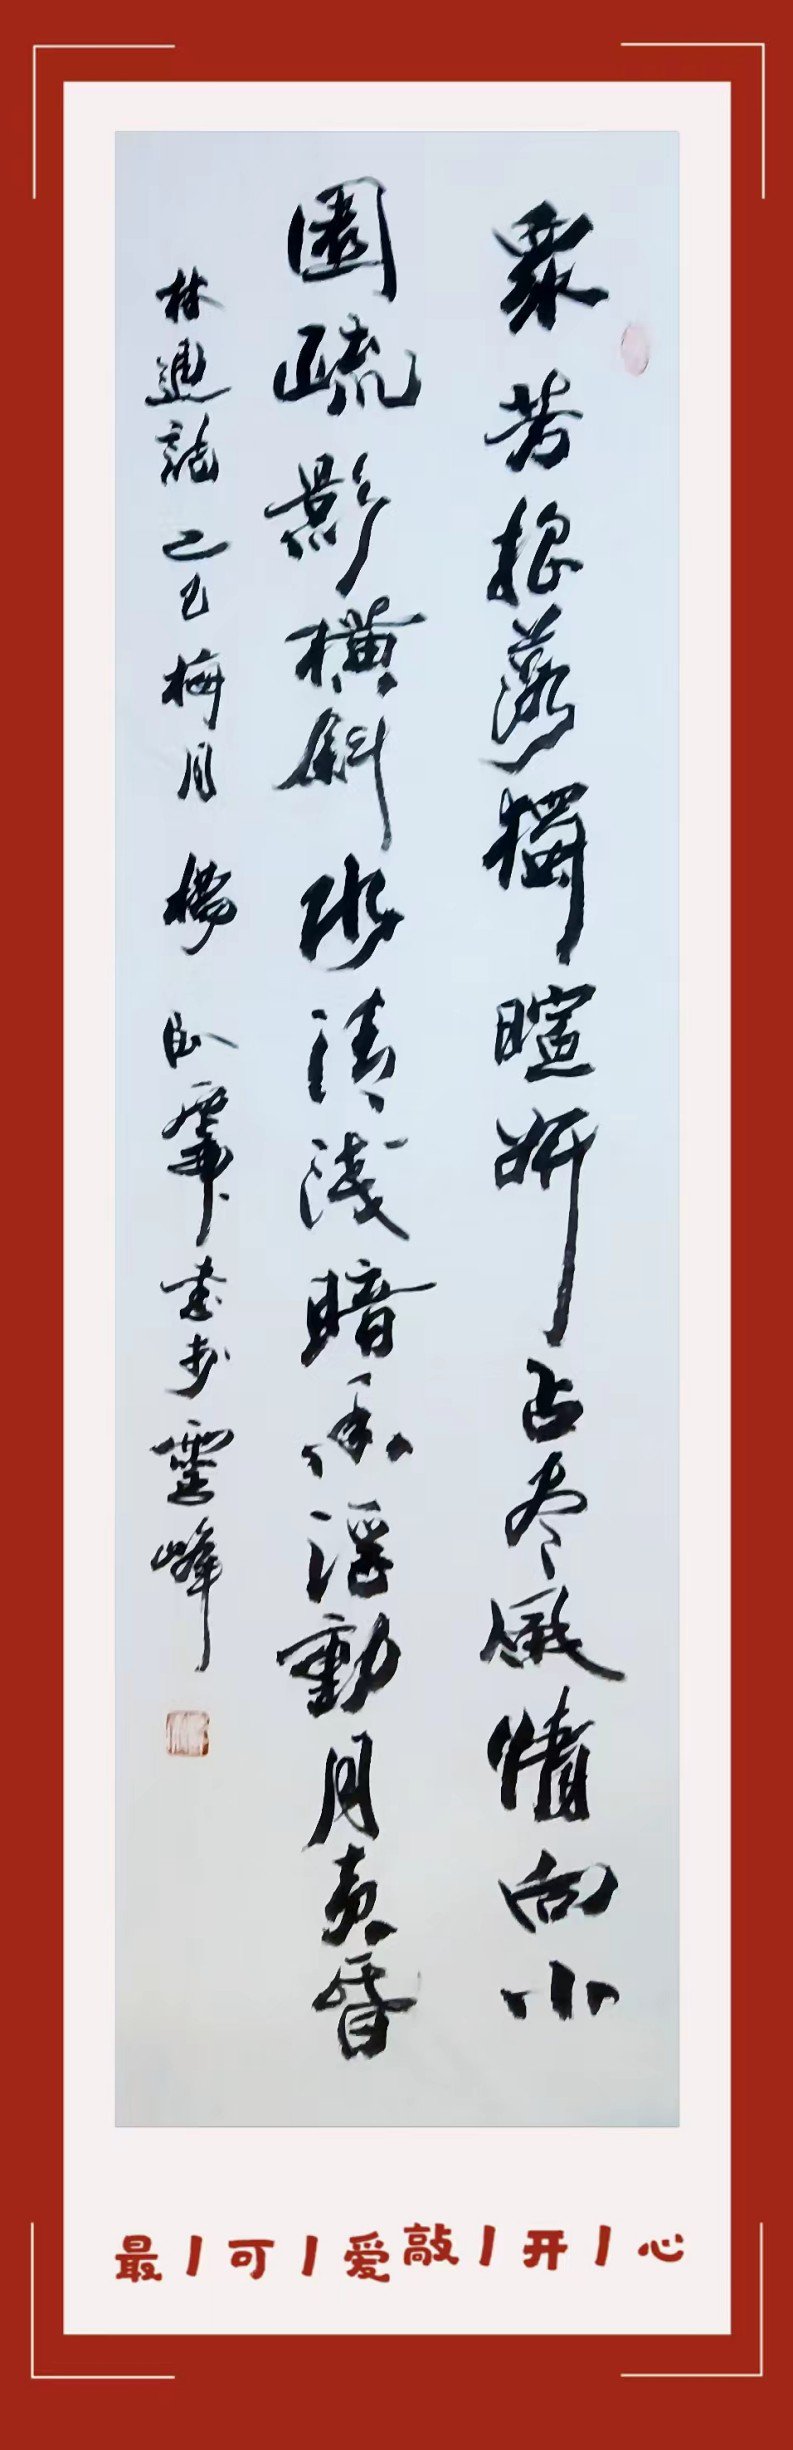 衆芳摇落獨暄妍占尽風情向小
園疏影横斜水清淺暗香浮動月黄昏
林逋詩 乙巳梅月 楊 雲峰
最丨可丨爱敲丨开丨心